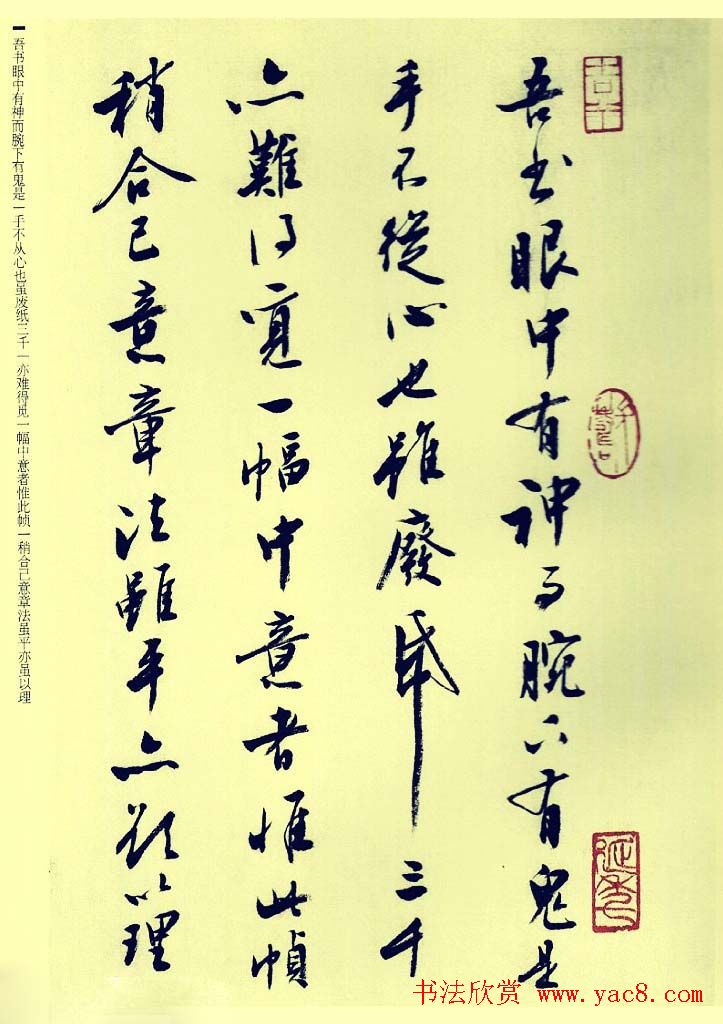 吾書眼中有神而腕下有鬼是
手不從心也雖廢帋三千
亦難得覓一幅中意者惟此幀
稍合己意章法雖平亦以理
吾书眼中有神而腕下有鬼是一手不从心也虽废纸三千一亦难得觅一幅中意者惟此帧一稍合己意章法虽平亦虽以理
书法欣赏 www.yac8.com